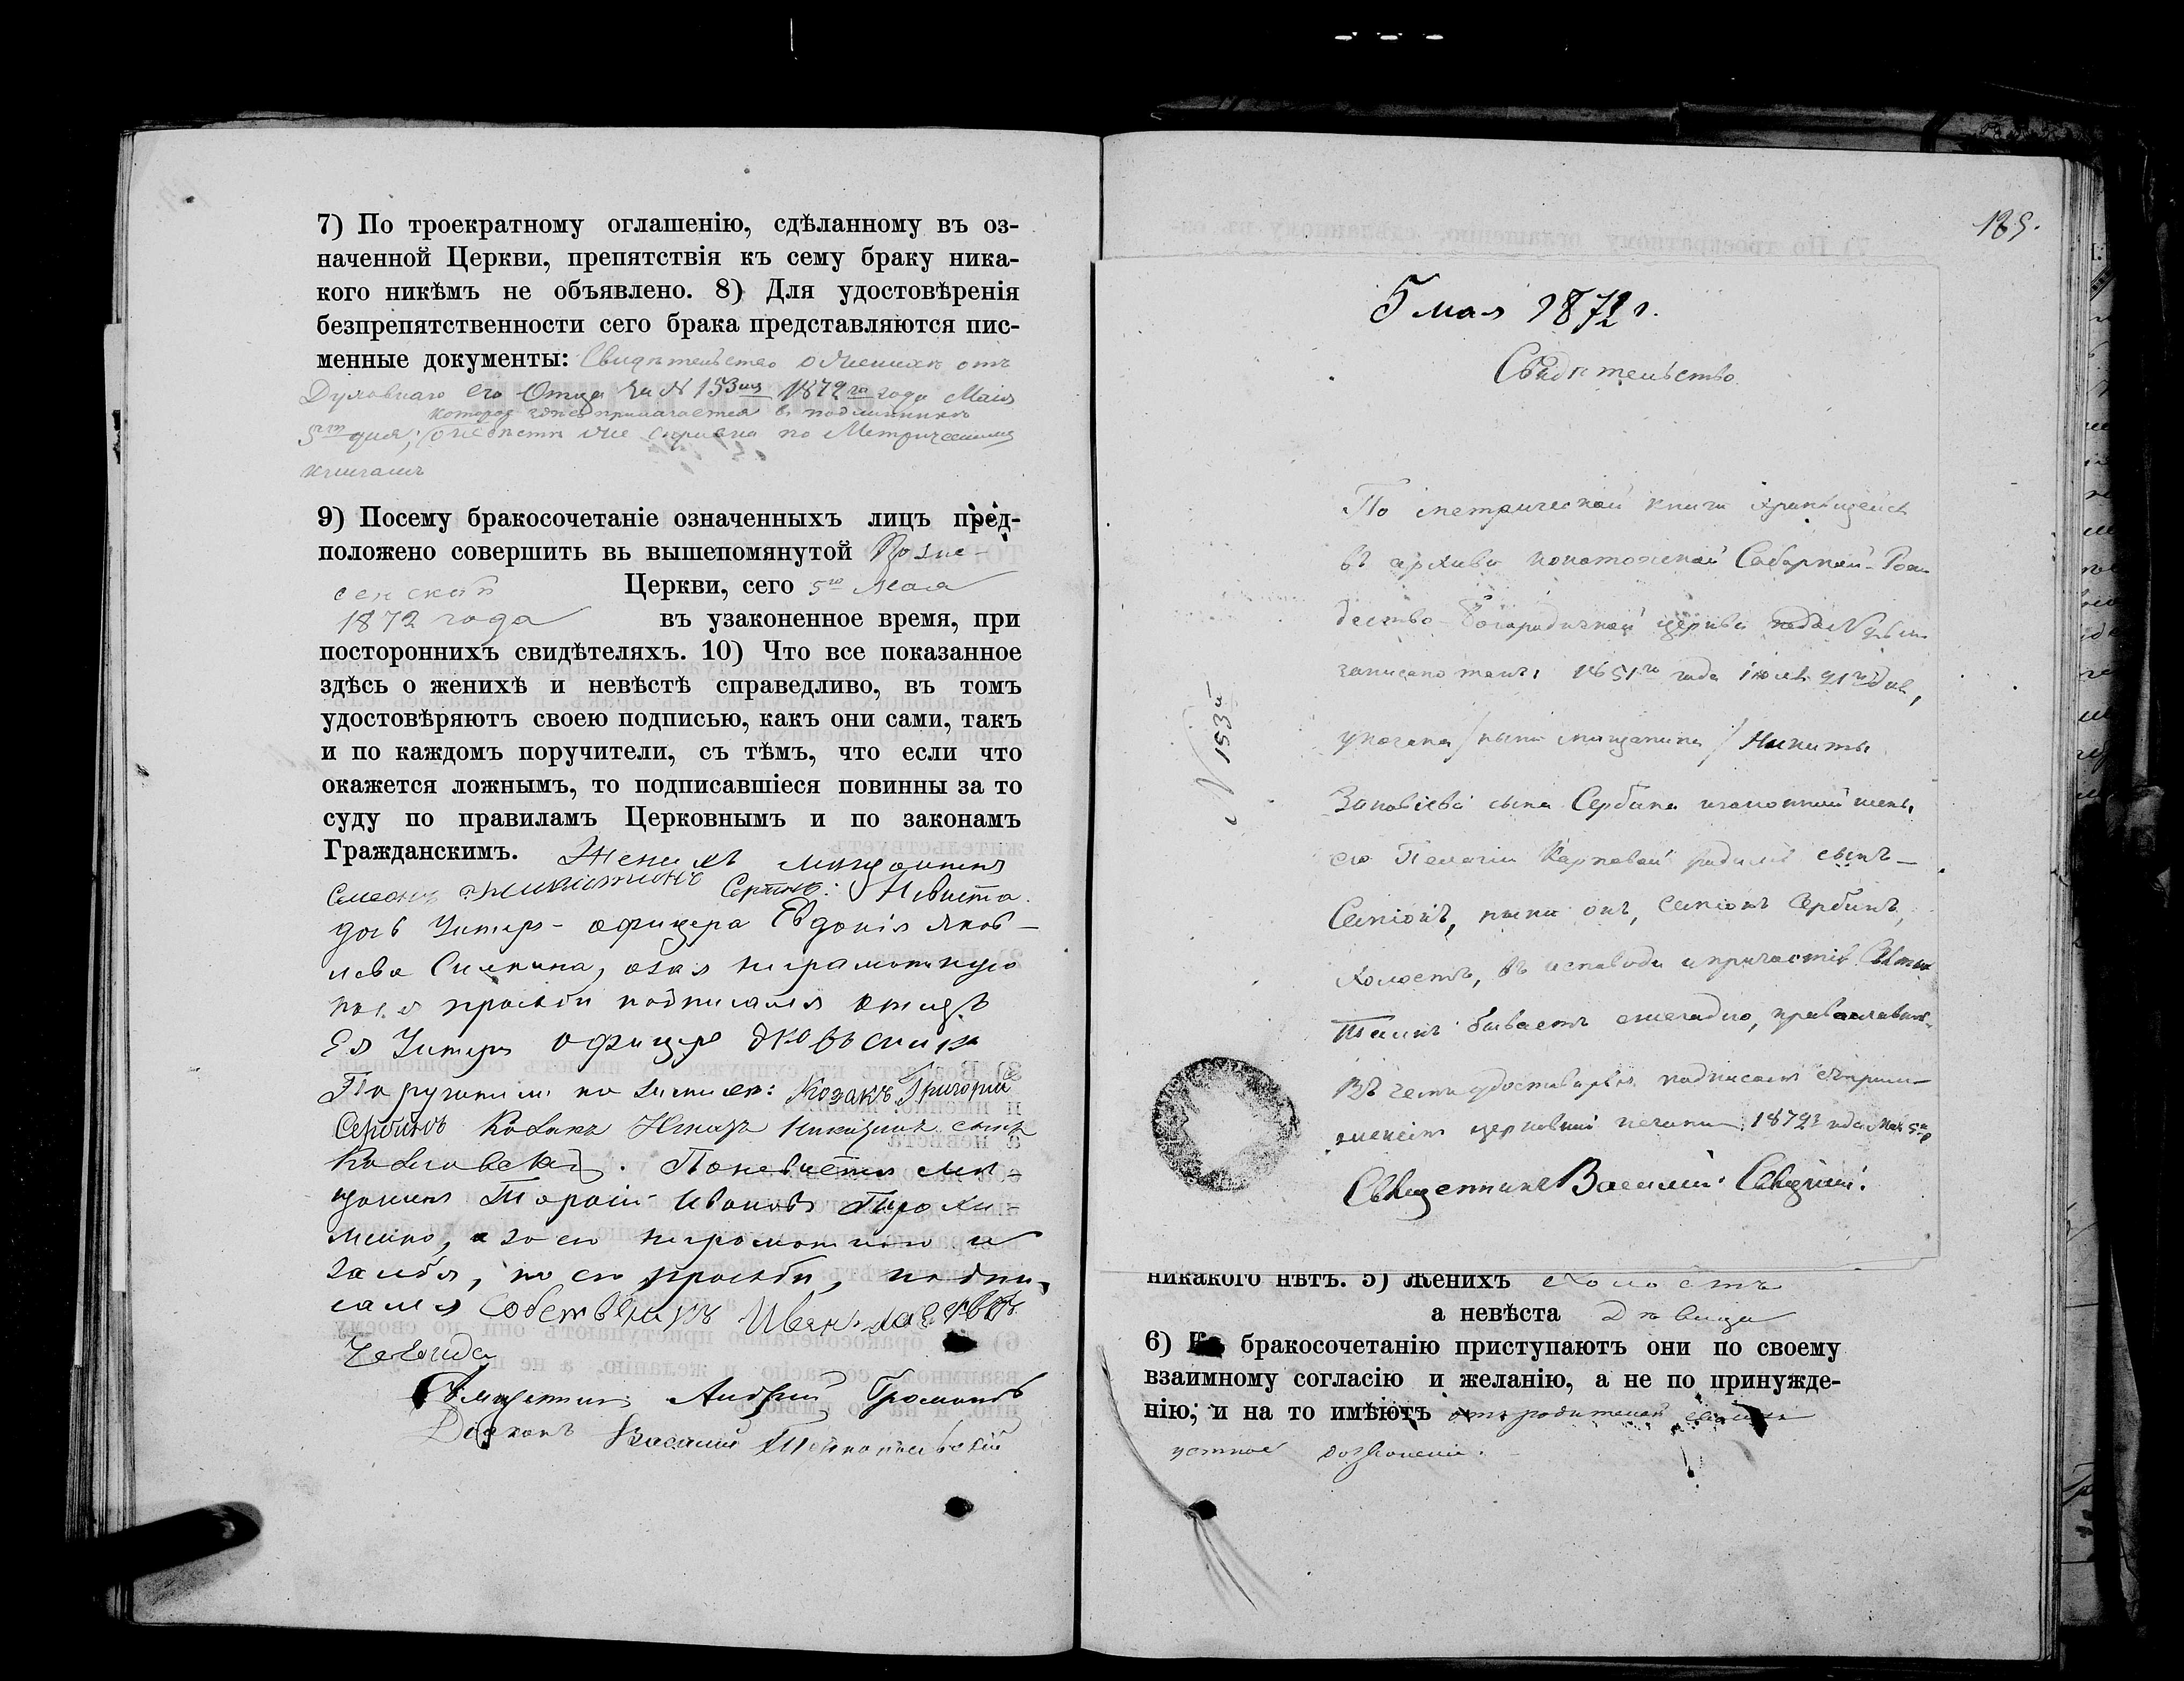 7) По троекратному оглашенію, сдѣланному въ оз-
наченной Церкви, препятствія къ сему браку ника-
кого никѣмъ не объявлено. 8) Для удостовѣренія
безпрепятственности сего брака представляются пис-
менные документы: Свидѣтельство о женихѣ отъ
Духовнаго его Отца за № 153мъ 1872го года Мая
которое здѣсь прилагается в подлинникѣ
5го дня; о невѣстѣ же справка по Метрическимъ
книгамъ
9) Посему бракосочетаніе означенныхъ лицъ пред-
положено совершить вь вышепомянутой Возне-
сенской Церкви, сего 5го Мая
1872 года въ узаконенное время, при
постороннихъ свидѣтеляхъ. 10) Что все показанное
здѣсь о женихѣ и невѣстѣ справедливо, въ томъ
удостовѣряютъ своею подписью, какъ они сами, такъ
и по каждомъ поручители, съ тѣмъ, что если что
окажется ложнымъ, то подписавшіеся повинны за то
суду по правиламъ Церковнымъ и по законамъ
Гражданскимъ. Женихъ мѣщанинъ
Невѣста
дочь Унтеръ-офицера Евдокія Яков-
лева неграмотную
просьбѣ подписался отецъ
Ея Унтеръ офицеръ
Поручители по женихѣ: Козакъ Григорій
Сербинъ Козакъ сынъ
По невѣстѣ мѣ-
щанинъ Тарасій Ивановъ Трохи-
менко, а за его неграмотного и
себя, по его просьбѣ, подпи-
сался собственникъ Иван
Священникъ Андрей Громовъ
Діаконъ Василій
185.
5 мая 1872 г.
Свидѣтельство.
№ 153й
По метрической книги хранящейся
въ архивѣ конотопской Соборной-Рож
дество-Богородичной церкви подъ №
записано такъ: 1851го года іюля 21го дня,
/ныне мѣщанина/ Никиты
сына Сербина и законной жены
его Пелагіи Карповой родился сынъ—
Симіонъ, ныне онъ, Симіонъ Сербинъ,
холостъ, въ исповѣди и причастія Святыхъ
Таинъ бываетъ ежегодно, православнаго.
Въ чемъ удостовѣряя, подписомъ съ прило-
женіемъ церковной печати 1872 года Мая 5го
Священникъ Василій
никакого нѣтъ. 5) Женихъ холостъ
а невѣста дѣвица
6) Къ бракосочетанію приступаютъ они по своему
взаимному согласію и желанію, а не по принужде-
нію; и на то имѣютъ отъ родителей своихъ
устное дозволеніе.